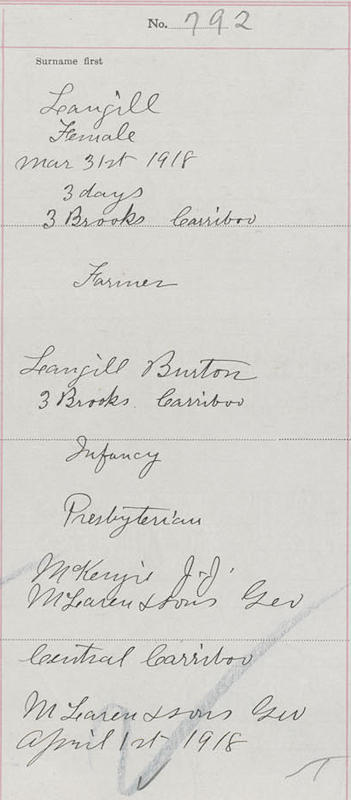 No. 792
Surname first
Langill
Female
Mar 31st 1918
3 days
3 Brooks Carriboo
Farmer
Langill Burton
3 Brooks Carriboo
Infancy
Presbyterian
McKenzie J.J.
McLaren & sons Geo
Central Carriboo
McLaren & sons Geo
April 1st 1918